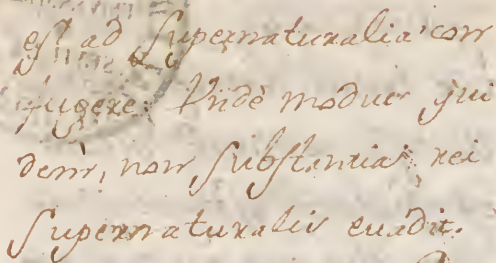 est ad supernaturalia con
fugere: Vndè modus qui
dem, non substantia rei
supernaturalis euadit.